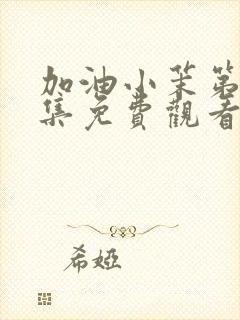 加油小笨第
集免費觀看
希婭